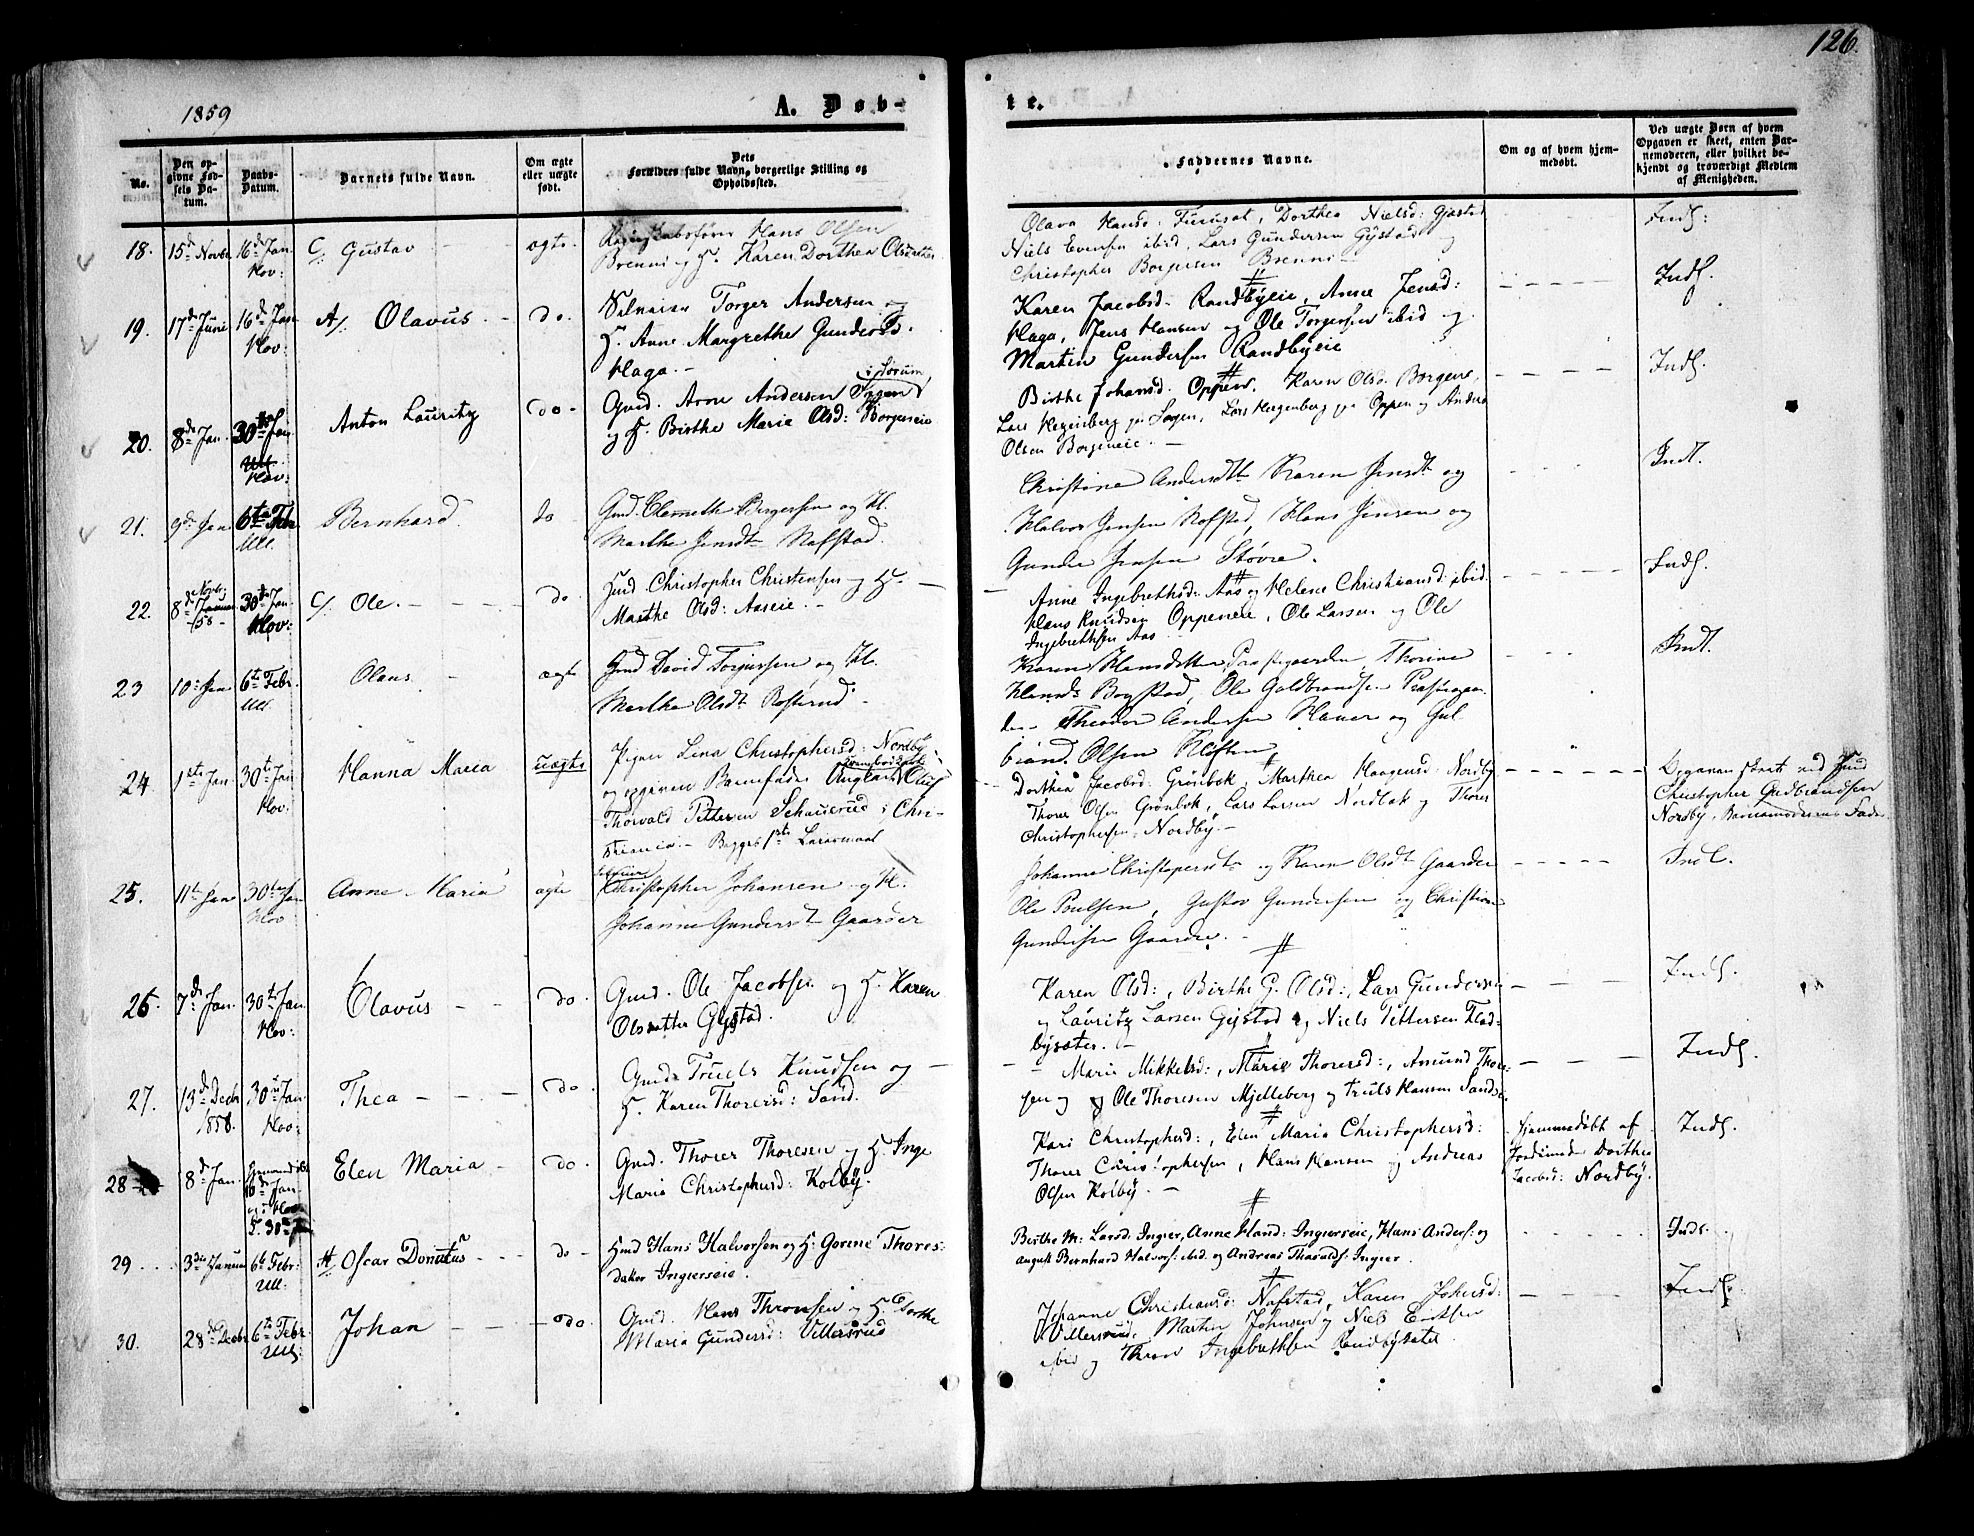 126.
1859
A. Døb-
te.
No.
Den op-
givne Fød-
sels Da-
tum.
Daabs-
Datum.
Barnets fulde Navn.
Om ægte
eller uægte
født.
Dets
Forældres fulde Navn, borgerlige Stilling og
Opholdssted.
Faddernes Navne.
Om og af hvem hjem-
medøbt.
Ved uægte Børn af hvem
Opgaven er skeet, enten Bar-
nemoderen, eller hvilket be-
kjendt og troværdigt Medlem
af Menigheden.
18. 15d Novbr 16d Jan Hov: C/. Gustav ægte. Hans Olsen
Brenni og H. Karen Dorthea Olsdatter
Olava Hansd: Furusat, Dorthea Nielsd: Gjestad
Niels Evensen ibid, Lars Gundersen Gystad og
Christopher Borgersen Brenni
Indf:
19. 17d Juni 16d Jan Hov: A/. Olavus do. Selveier Torger Andersen og
H. Anne Margrethe Gundersd:
Haga.
Karen Jacobsd: Randbyeie, Anne Jensd:
Haga, Jens Hansen og Ole Torgersen ibid og
Martin Gundersen Randbyeie
Indf.
20. 8d Jan. 30te Jan Hov: Anton Lauritz do Gmd. Arne Andersen i Sørum
og H. Birthe Marie Olsd: Borgeneie
Birthe Johansd. Oppen. Karen Olsd. Borgens,
Lars og Anders
Olsen Borgeneie.
Indf.
21. 9d Jan 6te Febr Ull. Bernhard do Gmd. Clemeth Borgersen og H.
Marthe Jensdtr Nafstad.
Christine Andersdtr Karen Jensdtr og
Halvor Jensen Nafstad, Hans Jensen og
Gunder Jensen Støvre.
Indf.
22. 8d Novbr 58 30te Jan. Hov: C/. Ole. do Hmd Christopher Christensen og H.
Marthe Olsd: Aaseie.
Anne Ingebrethsd: Aas og Helene Christiansd: ibid.
Hans Knudsen Oppeneie, Ole Larsen og Ole
Ingebrethsen Aas
Indf.
23 10 Jan 6te Febr. Ull. Olaus ægte Gmd David Torgersen og H.
Marthe Olsdtr
Karen Hansdatter Præstegaarden, Thorine
Bogstad, Ole Guldbrandsen Præstegaar-
den Theodor Andersen og Gul-
brand Olsen Kløften
Indf.
24. 1ste Jan 30te Jan Hov. Hanna Maria uægte Pigen Lina Christophersd: Nordby
og opgiven Barnefader Ungkarl Oluf
Thorvald Pettersen i Chri-
stiania. Begges 1ste Leiermaal
Dorthea Jacobsd: Grønbok, Marthea Haagensd: Nordby
Thorer Olsen Grønbok, Lars Larsen Nordbak og Thorer
Christophersen Nordby
Opgaven skeet ved Hmd
Christopher Gudbrandsen
Nordby, Barnemoderens Fader
25. 11te Jan 30te Jan Hov Anne Maria ægte Selveier Christopher Johansen og H.
Johanne Gundersdtr Gaarder
Johanne Christopersdtr og Karen Olsdtr Gaarder
Ole Poulsen, Gustav Gundersen og Christian
Gundersen Gaarder.
Indf.
26. 7d Jan. 30te Jan Hov: Olavus do. Gmd. Ole Jacobsen og H. Karen
Olsdatter Gystad.
Karen Olsd:, Birthe G. Olsd:, Lars Gundersen
og Lauritz Larsen Gystad og Niels Pettersen Flad-
bysæter.
Indf.
27. 13d Decbr 1858. 30te Jan Hov: Thea do Gmd Truels Knudsen og
H. Karen Thorersd: Sand.
Marie Mikkelsd:, Marie Thorersd:, Amund Thore-
sen og Ole Thoresen Mjelleberg og Truls Hansen Sandse
Indf.
28 8d Jan. 10d Jan. og i Hov K. 30te Jan Elen Maria do Gmd. Thorer Thoresen og H. Inge
Maria Christophersd: Kolby.
Kari Christophersd:, Elen Maria Christophersd:
Thorer Christophersen, Hans Hansen og Andreas
Olsen Kolby.
Hjemmedøbt af
Jordemoder Dorthea
Jacobsd: Nordby.
Indf.
29 3die Januar 6te Febr: Ull. Oscar Donatus do Hmd Hans Halvorsen og H: Gorine Thores-
datter Ingierseie.
Birthe M: Larsd. Ingier, Anne Hansd: Ingierseie, Hans Anders: og
August Bernhard Halvors: ibid. og Andreas Thorvalds: Ingier.
Indf.
30. 28d Decbr 6te Febr. Ull. Johan do. Gmd. Hans Thronsen og H. Dorthe
Maria Gundersd: Villersrud
Johanne Christiansd: Nafstad, Karen Johnsd:
Villersrud, Martin Johnsen og Niels
ibid og Thron Ingebrethsen Randbysæter
Indf.